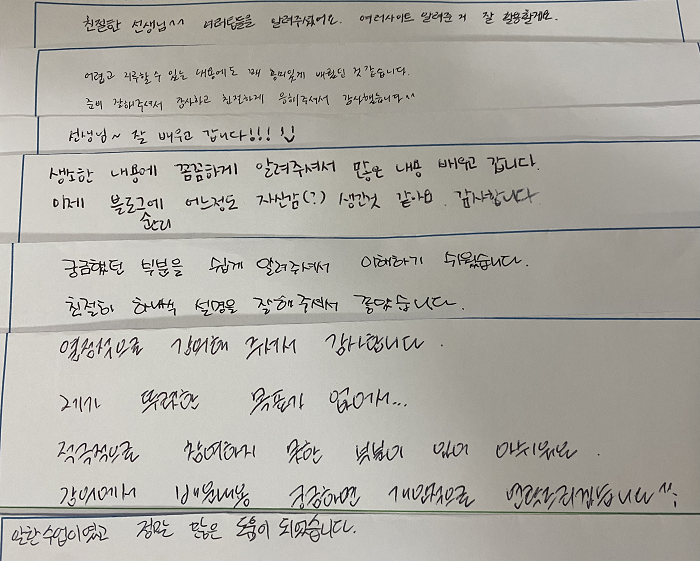 친절한 선생님^^ 여러팁들을 알려주셨어요. 여러사이트 알려준 거 잘 활용할게요.
어렵고 지루할 수 있는 내용에도 꽤 흥미있게 배웠던 것 같습니다.
준비 잘해주셔서 감사하고 친절하게 응해주셔서 감사했습니다^^
선생님~ 잘 배우고 갑니다!!!
생소한 내용에 꼼꼼하게 알려주셔서 많은 내용 배우고 갑니다.
이제 블로그에 어느정도 자신감(?) 생긴것 같아요. 감사합니다
궁금했던 부분을 쉽게 알려주셔서 이해하기 쉬웠습니다.
친절히 하나씩 설명을 잘해주셔서 좋았습니다.
열정적으로 강의해 주셔서 감사합니다.
제가 뚜렷한 목표가 없어서...
적극적으로 참여하지 못한 부분이 있어 아쉬워요.
강의에서 배운내용 궁금하면 개인적으로 연락드리겠습니다^^;
알찬수업이였고 정말 많은 도움이 되었습니다.